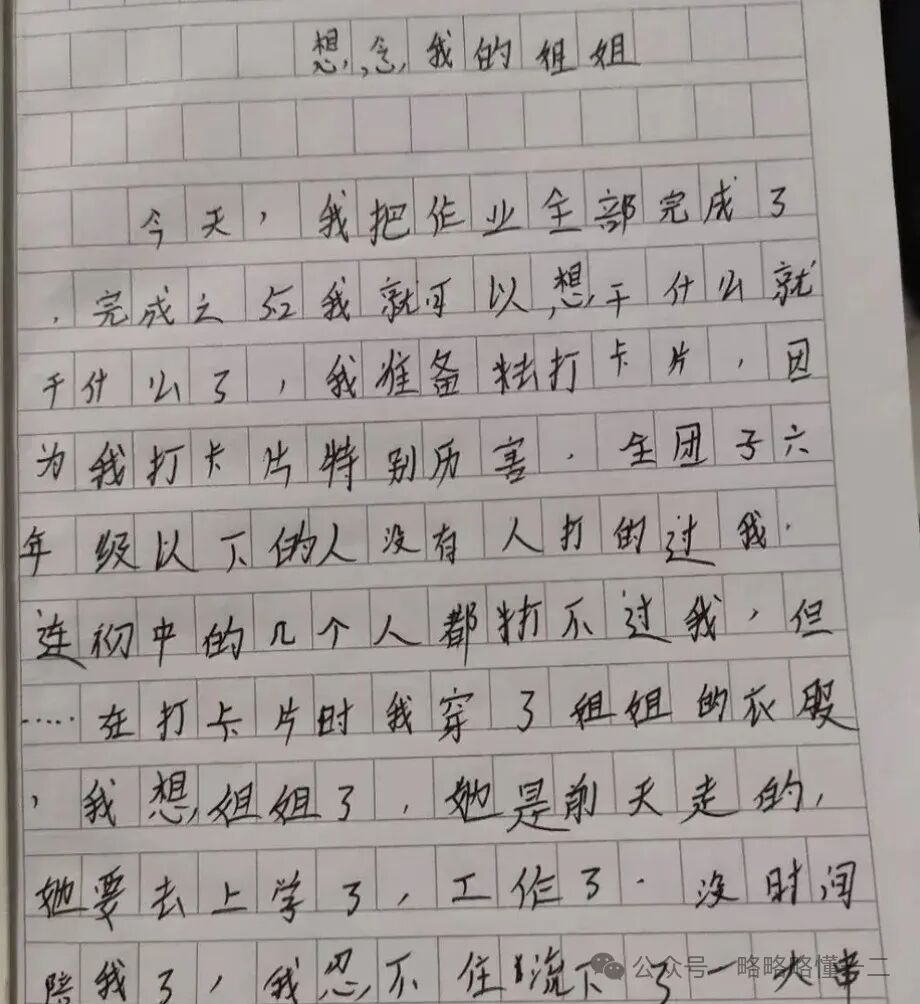 想念我的姐姐
今天，我把作业全部完成了
，完成之后我就可以想干什么就
干什么了，我准备去打卡片，因
为我打卡片特别历害．全团子六
年级以下的人没有人打的过我．
连初中的几个人都打不过我，但
……在打卡片时我穿了姐姐的衣服
，我想姐姐了，她是前天走的，
她要去上学了，工作了．没时间
陪我了，我忍不住流下了一大串
公众号 略略略懂一二